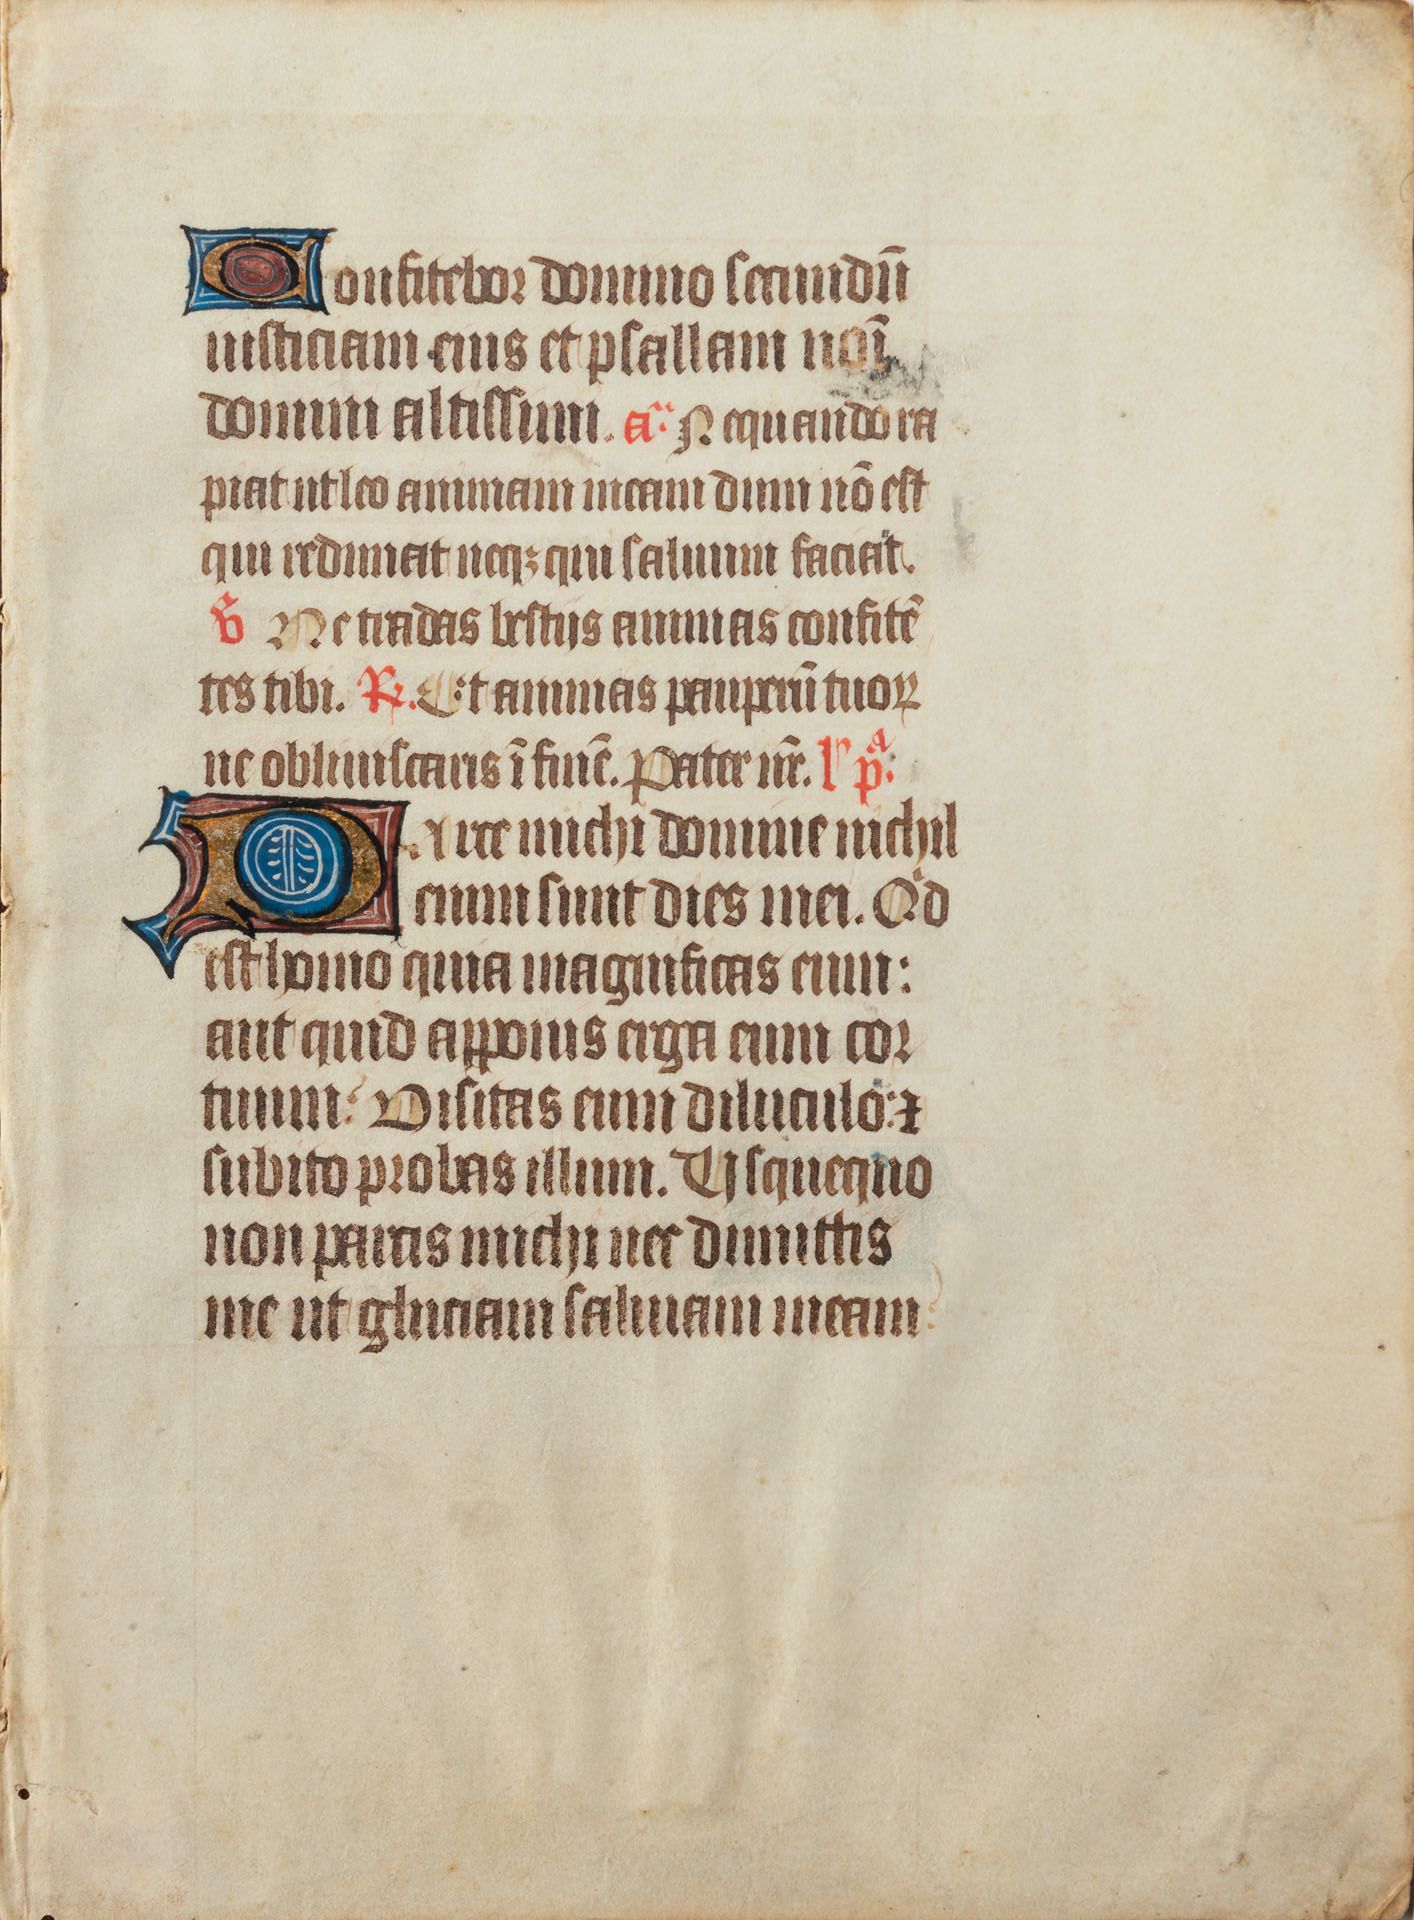 Confitebor domino secundū
iusticiam eius et psallam noī
domini altissimi. aᵃ. Nequando ra
piat ut leo animam meam dum nō est
qui redimat neqꝫ qui saluum faciat.
v̄ Ne tradas bestijs animas confitē
tes tibi. R. Et animas pauperū tuoꝝ
ne obliuiscaris ī finē. Pater nr̄. l' pᵃ.
Parce michi domine nichil
enim sunt dies mei. Qͥd
est homo quia magnificas eum:
aut quid apponis erga eum cor
tuum? Visitas eum diluculo: ⁊
subito probas illum. Usquequo
non parcis michi nec dimittis
me ut gluciam saliuam meam